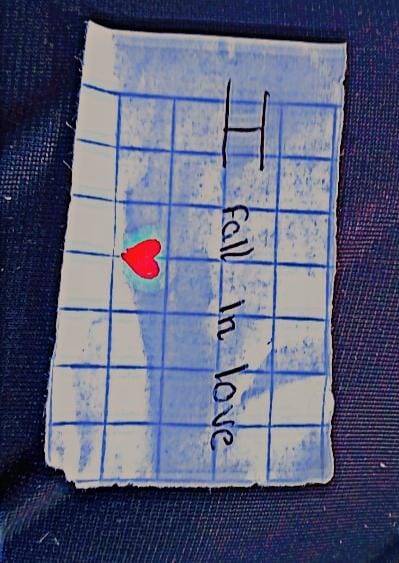 I fall in love